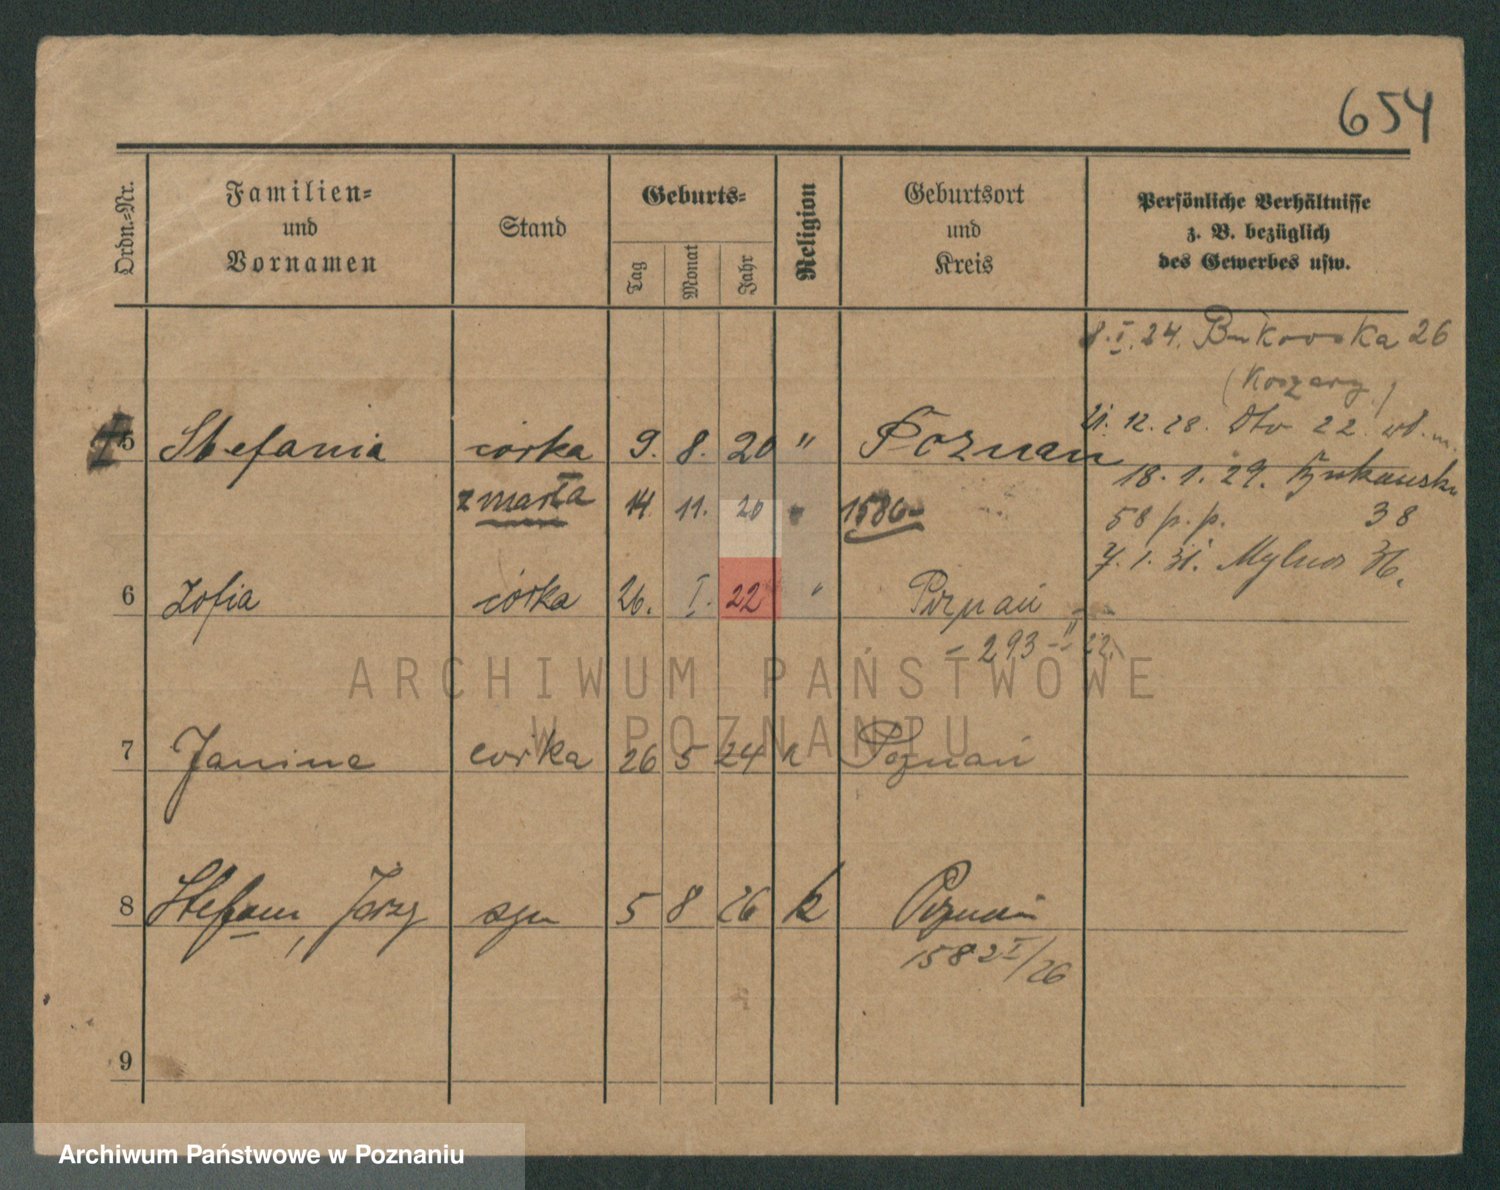 654
Ordn.=Nr.
Familien=
und
Vornamen
Stand
Geburts=
Tag
Monat
Jahr
Religion
Geburtsort
und
Kreis
Persönliche Verhältnisse
z. B. bezüglich
des Gewerbes usw.
8.I.24. Bukowska 26
(Koszary)
5 Stefania córka 9. 8. 20 " Poznań
21. 12. 28. 22
zmarła 14. 11. 20 " 1586
18. 1. 29. Bukowska
58 p.p. 38
7. 1. 31. Mylna 36.
6 Zofia córka 26. I. 22 " Poznań
– 293 – II 22
ARCHIWUM PAŃSTWOWE
W POZNANIU
7 Janina corka 26 5 24 k Poznań
8 Stefan, Jerzy syn 5 8 26 k Poznań
1582 I/26
9
Archiwum Państwowe w Poznaniu